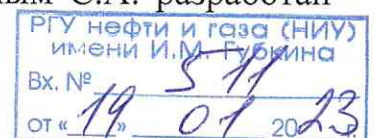 ным С.А. разработан
РГУ нефти и газа (НИУ)
имени И.М. Губкина
Вх. № 511
от « 19 » 01 2023